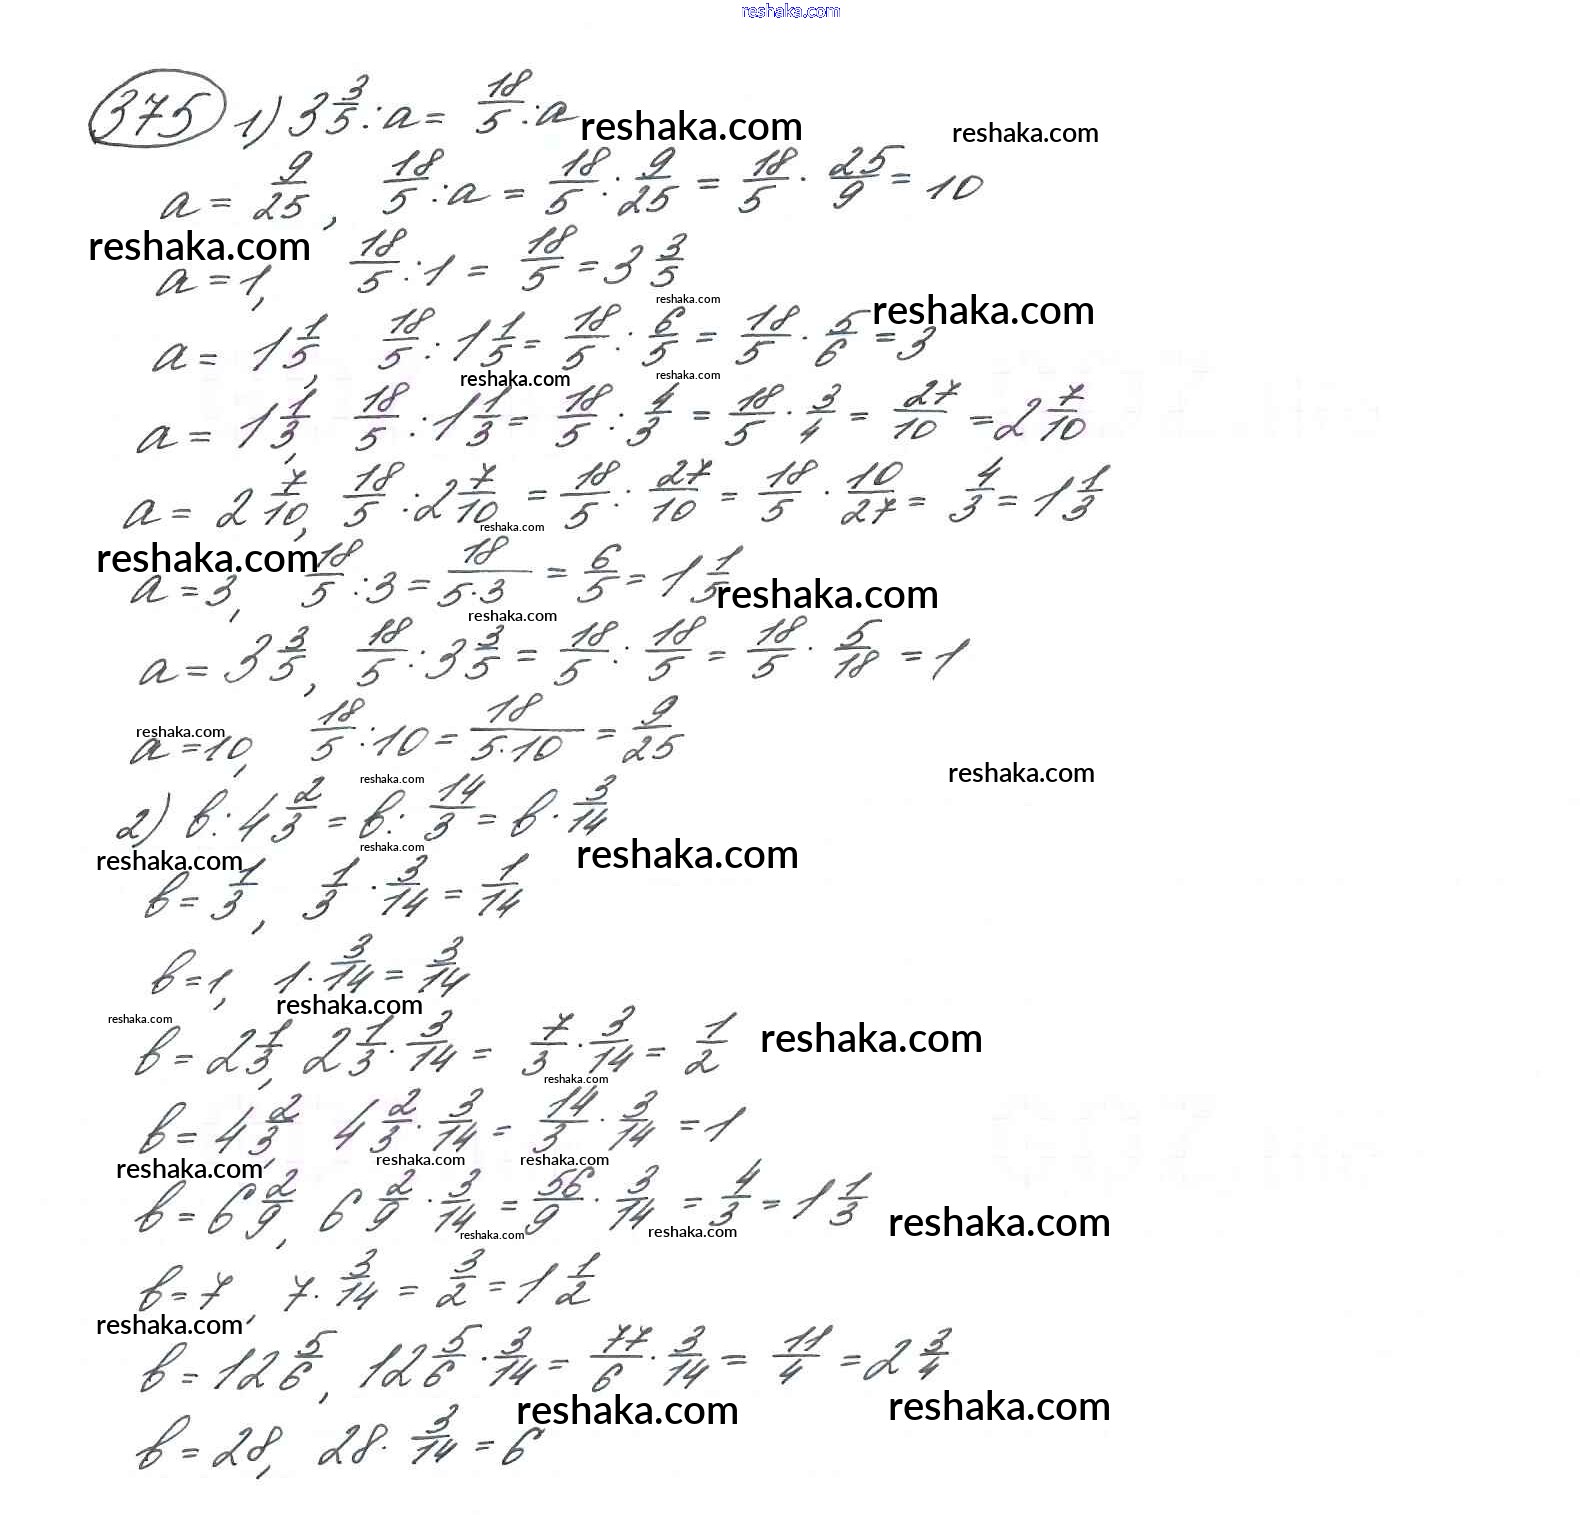 reshaka.com
375 1) 3 3/5 : a = 18/5 : a reshaka.com reshaka.com
a = 9/25, 18/5 : a = 18/5 : 9/25 = 18/5 · 25/9 = 10
reshaka.com
a = 1, 18/5 : 1 = 18/5 = 3 3/5
reshaka.com reshaka.com
a = 1 1/5, 18/5 : 1 1/5 = 18/5 : 6/5 = 18/5 · 5/6 = 3
reshaka.com reshaka.com
a = 1 1/3, 18/5 : 1 1/3 = 18/5 : 4/3 = 18/5 · 3/4 = 27/10 = 2 7/10
a = 2 7/10, 18/5 : 2 7/10 = 18/5 : 27/10 = 18/5 · 10/27 = 4/3 = 1 1/3
reshaka.com
reshaka.com
a = 3, 18/5 : 3 = 18/5·3 = 6/5 = 1 1/5 reshaka.com
reshaka.com
a = 3 3/5, 18/5 : 3 3/5 = 18/5 : 18/5 = 18/5 · 5/18 = 1
reshaka.com
a = 10, 18/5 : 10 = 18/5·10 = 9/25
reshaka.com
reshaka.com
2) b : 4 2/3 = b : 14/3 = b · 3/14
reshaka.com reshaka.com reshaka.com
b = 1/3, 1/3 · 3/14 = 1/14
b = 1, 1 · 3/14 = 3/14
reshaka.com
reshaka.com reshaka.com
b = 2 1/3, 2 1/3 · 3/14 = 7/3 · 3/14 = 1/2
reshaka.com
b = 4 2/3, 4 2/3 · 3/14 = 14/3 · 3/14 = 1
reshaka.com reshaka.com reshaka.com
b = 6 2/9, 6 2/9 · 3/14 = 56/9 · 3/14 = 4/3 = 1 1/3 reshaka.com
reshaka.com reshaka.com
b = 7, 7 · 3/14 = 3/2 = 1 1/2
reshaka.com
b = 12 5/6, 12 5/6 · 3/14 = 77/6 · 3/14 = 11/4 = 2 3/4
reshaka.com reshaka.com
b = 28, 28 · 3/14 = 6